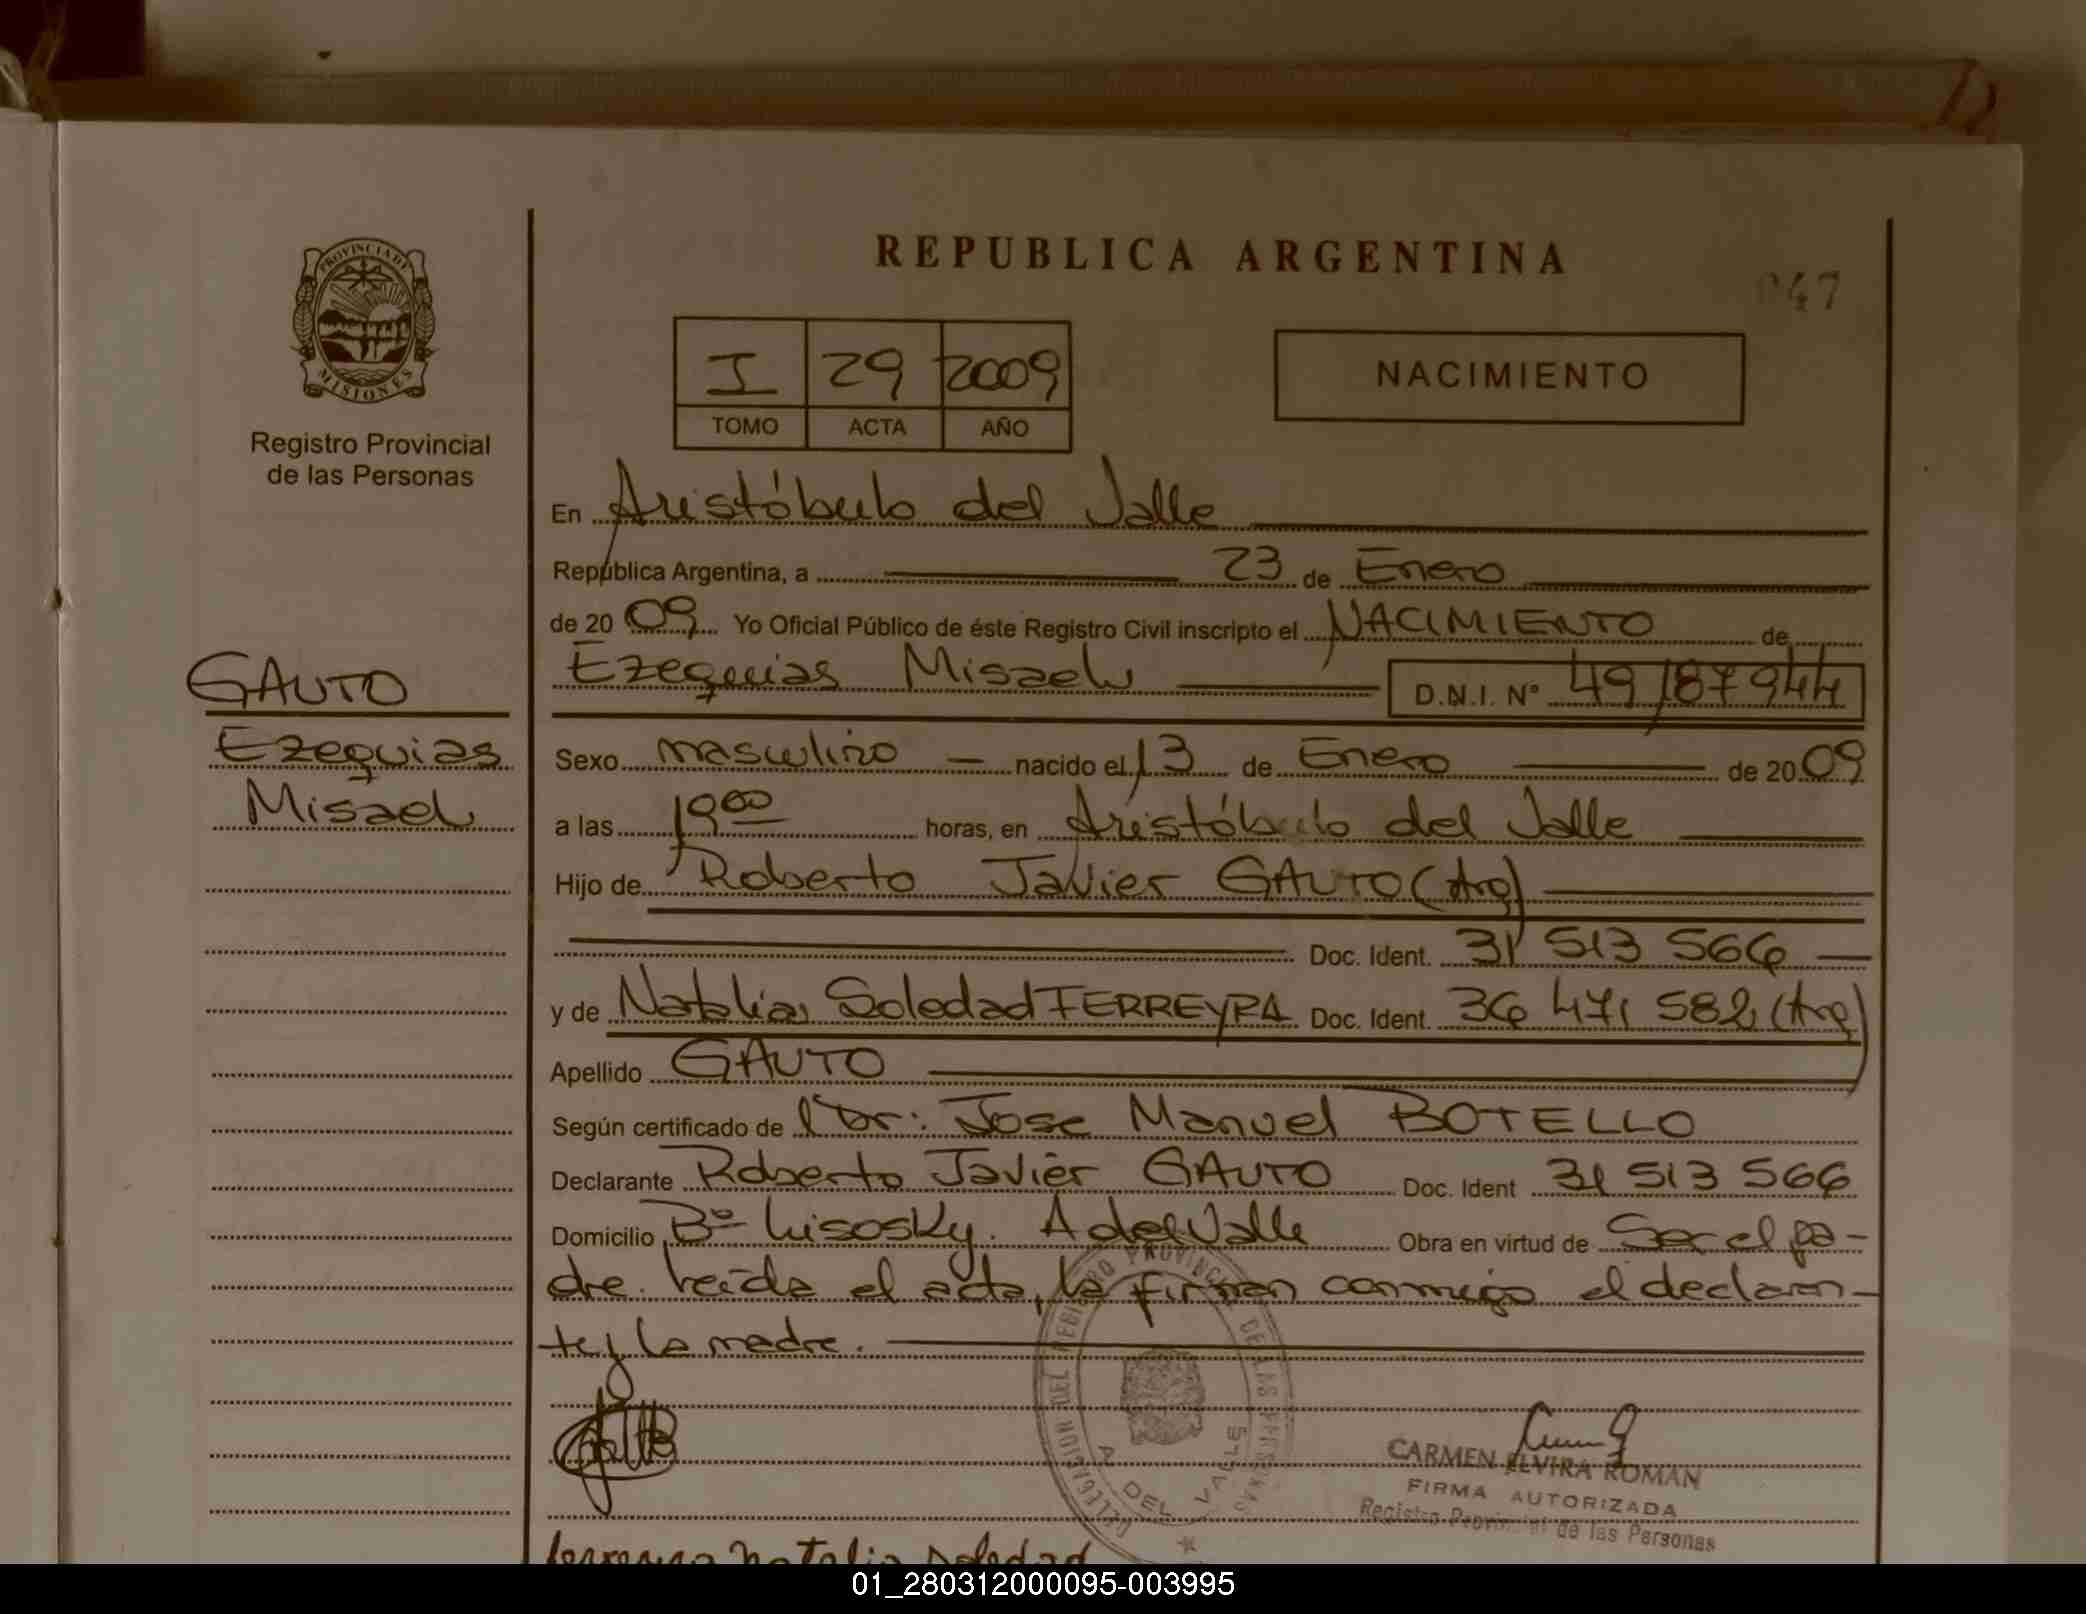 REPUBLICA ARGENTINA
047
PROVINCIA DE
MISIONES
Registro Provincial
de las Personas
I 29 2009
TOMO ACTA AÑO
NACIMIENTO
En Aristóbulo del Valle
República Argentina, a 23 de Enero
de 20 09 Yo Oficial Público de éste Registro Civil inscripto el NACIMIENTO de
Ezequias Misael D.N.I. Nº 49187944
GAUTO
Ezequias
Misael
Sexo masculino nacido el 13 de Enero de 20 09
a las 19 00 horas, en Aristóbulo del Valle
Hijo de Roberto Javier GAUTO (Arg)
Doc. Ident. 31 513 566
y de Natalia Soledad FERREYRA Doc. Ident. 36 471 582 (Arg)
Apellido GAUTO
Según certificado de Dr: Jose Manuel BOTELLO
Declarante Roberto Javier GAUTO Doc. Ident 31 513 566
Domicilio Bº Lisosky. A del Valle Obra en virtud de Ser el pa-
dre. Leída el acta, la firman conmigo el declaran-
te y la madre.
DELEGACION DEL REGISTRO PROVINCIAL DE LAS PERSONAS
A. DEL VALLE
CARMEN ELVIRA ROMAN
FIRMA AUTORIZADA
Registro Provincial de las Personas
Ferreyra Natalia Soledad
01_280312000095-003995